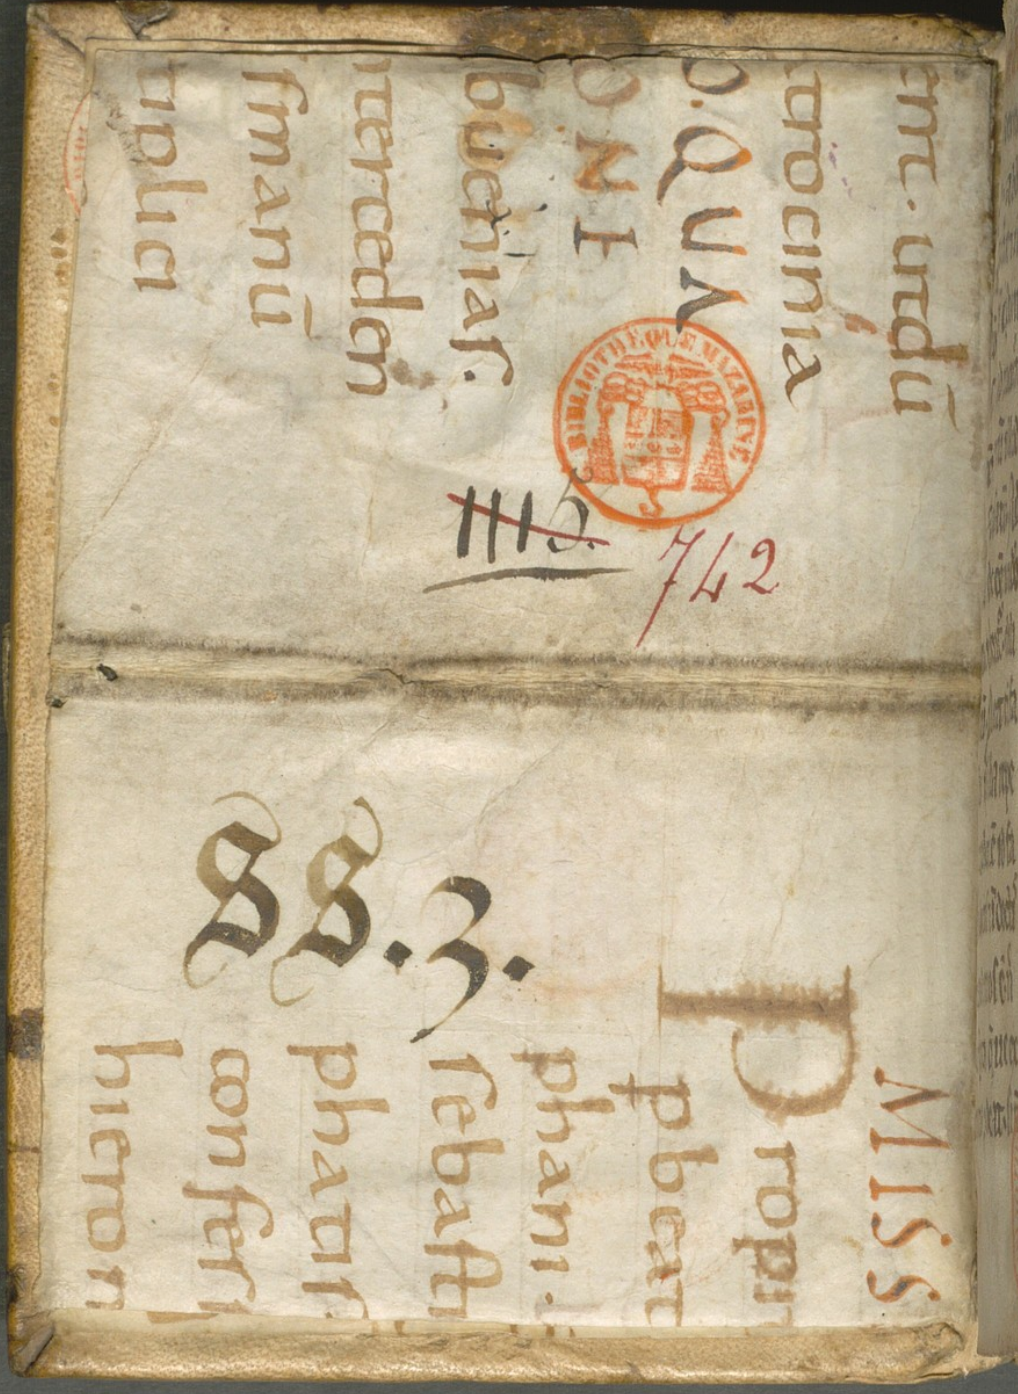 ent. indū
trocinia
O. QUA
ONI
bueniaſ.
terceden
ſmanū
tiplici
BIBLIOTHÈQUE MAZARINE
742
SS.3.
MISS
Propi
p beat
phani.
ſebaſti
confeſ
hieron